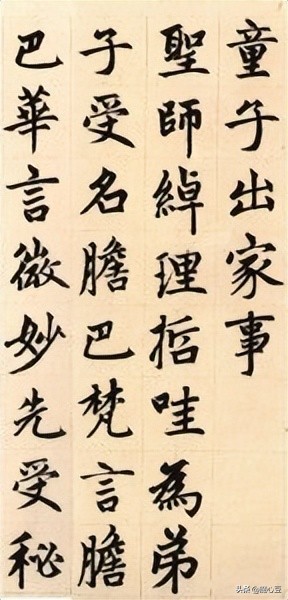 童子出家事
聖師綽理哲哇為弟
子受名膽巴梵言膽
巴華言微妙先受秘
头条@幽心豆